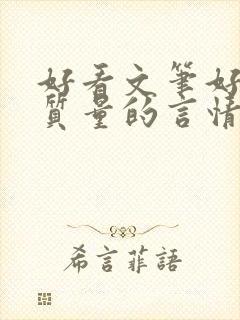 好看文筆好
質量的言情
希言菲語